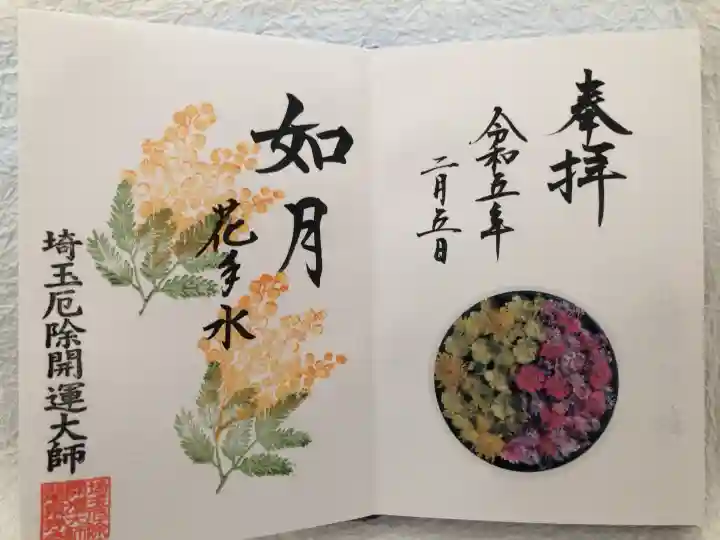 奉拝
令和五年
二月五日
如月
花手水
埼玉厄除開運大師